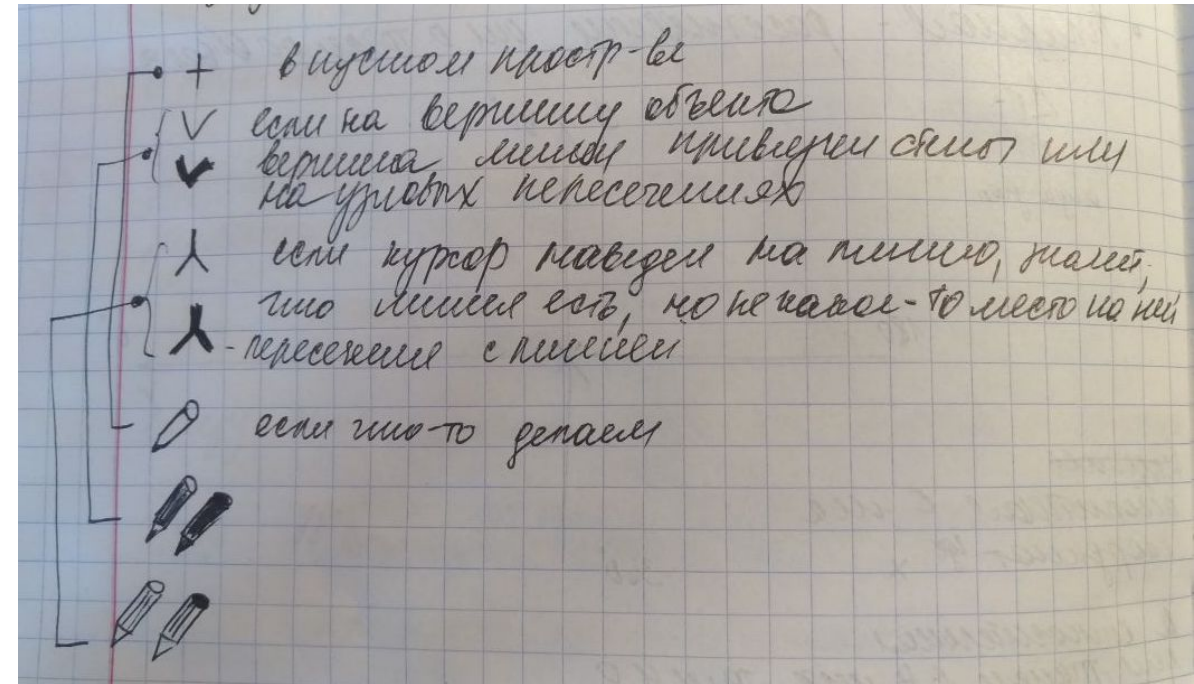 + в пустом простр-ве
если на вершину объекта
вершина линии привязки стены или
на узловых пересечениях
если курсор наведен на линию, значит,
что линия есть, но не какое-то место на ней
- пересечение с линией
если что-то делаем